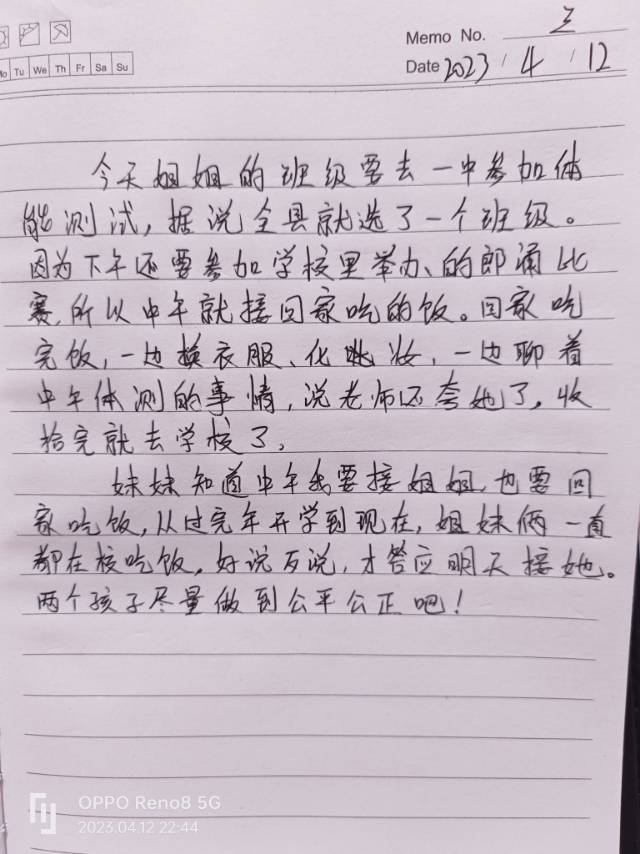 Memo No. 三
Mo Tu We Th Fr Sa Su
Date 2023 / 4 / 12
今天姐姐的班级要去一中参加体
能测试，据说全县就选了一个班级。
因为下午还要参加学校里举办、的郎诵比
赛，所以中午就接回家吃的饭。回家吃
完饭，一边换衣服、化眺妆，一边聊着
中午体测的事情，说老师还夸她了，收
拾完就去学校了，
妹妹知道中午我要接姐姐，也要回
家吃饭，从过完年开学到现在，姐妹俩一直
都在校吃饭，好说歹说，才答应明天接她。
两个孩子尽量做到公平公正吧！
OPPO Reno8 5G
2023.04.12 22:44